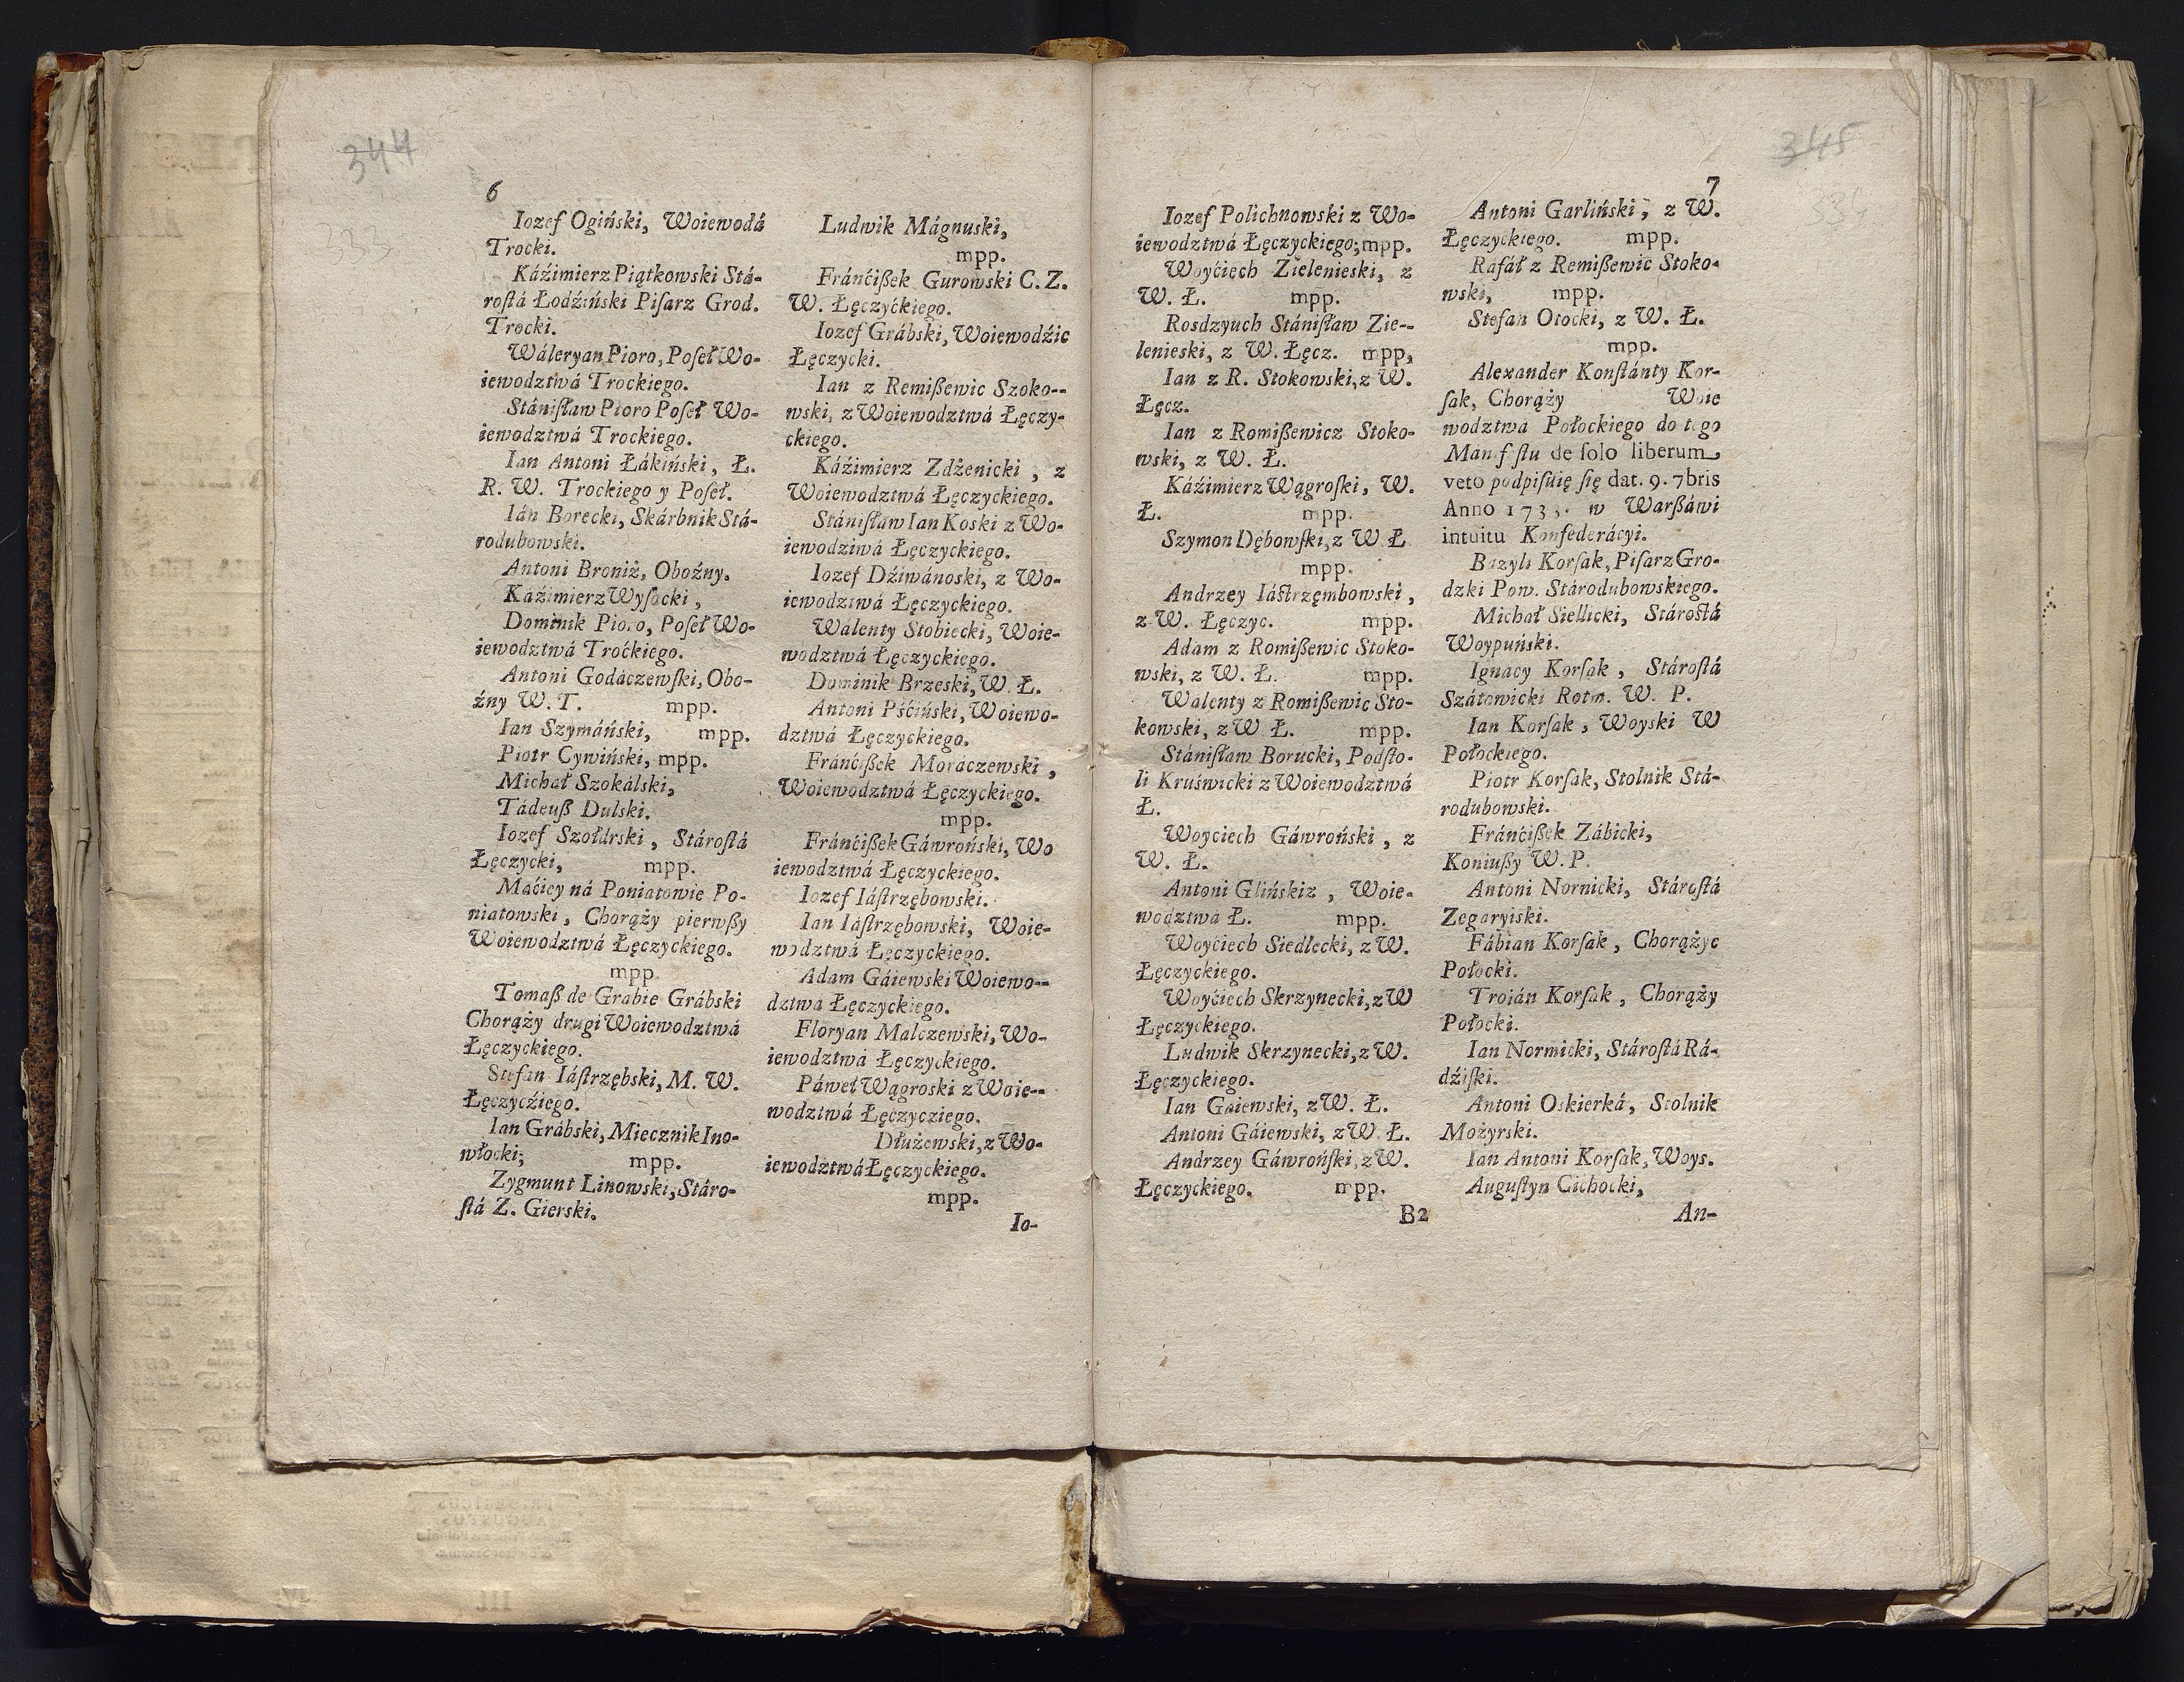 344
333
6
Iozef Ogiński, Woiewodá
Trocki.
Káźimierz Piątkowski Stá-
roſtá Łodźiński Piſarz Grod.
Trocki.
Wáleryan Pioro, Poſeł Wo-
iewodztwá Trockiego.
Stániſław Pioro Poſeł Wo-
iewodztwá Trockiego.
Ian Antoni Łákiński, Ł.
R. W. Trockiego y Poſeł.
Ián Borecki, Skárbnik Stá-
rodubowski.
Antoni Broniż, Oboźny.
Káźimierz Wyſocki,
Dominik Pioro, Poſeł Wo-
iewodztwá Troćkiego.
Antoni Godáczewſki, Obo-
źny W. T. mpp.
Ian Szymáński, mpp.
Piotr Cywiński, mpp.
Michał Szokálski,
Tádeuß Dulski.
Iozef Szołdrski, Stároſtá
Łęczycki, mpp.
Maćiey ná Poniatowie Po-
niatowski, Chorąży pierwßy
Woiewodztwá Łęczyckiego.
mpp.
Tomaß de Grabie Grábski
Chorąży drugi Woiewodztwá
Łęczyckiego.
Stefan Iáſtrzębski, M. W.
Łęczycźiego.
Ian Grábski, Miecznik Ino-
włocki; mpp.
Zygmunt Linowski, Stáro-
ſtá Z. Gierski.
Ludwik Mágnuski,
mpp.
Fránćißek Gurowski C. Z.
W. Łęczyćkiego.
Iozef Grábski, Woiewodźic
Łęczycki.
Ian z Remißewic Szoko--
wski, z Woiewodztwá Łęczy-
ckiego.
Káźimierz Zdżenicki, z
Woiewodztwá Łęczyckiego.
Stániſław Ian Koski z Wo-
iewodziwá Łęczyckiego.
Iozef Dźiwánoski, z Wo-
iewodztwá Łęczyckiego.
Wálenty Stobiecki, Woie-
wodztwá Łęczyckiego.
Dominik Brzeski, W. Ł.
Antoni Pśćiński, Woiewo-
dztwá Łęczyckiego.
Fránćißek Moráczewski,
Woiewodztwá Łęczyckiego.
mpp.
Fránćißek Gáwroński, Wo
iewodztwá Łęczyckiego.
Iozef Iáſtrzębowski.
Ian Iáſtrzębowski, Woie-
wodztwá Łęczyckiego.
Adam Gáiewski Woiewo--
dztwa Łęczyckiego.
Floryan Malczewski, Wo-
iewodztwá Łęczyckiego.
Páweł Wągroski z Woie--
wodztwá Łęczycziego.
Dłużewski, z Wo-
iewodztwá Łęczyckiego.
mpp.
Io-
345
334
7
Iozef Polichnowski z Wo-
iewodztwá Łęczyckiego; mpp.
Woyćięch Zielenieski, z
W. Ł. mpp.
Rosdzyuch Stániſław Zie--
lenieski, z W. Łęcz. mpp,
Ian z R. Stokowski, z W.
Łęcz.
Ian z Romißewicz Stoko-
wski, z W. Ł.
Káźimierz Wągroſki, W.
Ł. mpp.
Szymon Dębowſki, z W Ł
mpp.
Andrzey Iáſtrzęmbowski,
z W. Łęczyc. mpp.
Adam z Romißewic Stoko-
wski, z W. Ł. mpp.
Walenty z Romißewic Sto-
kowski, z W Ł. mpp.
Stániſław Borucki, Podſto-
li Kruświcki z Woiewodztwá
Ł.
Woyciech Gáwroński, z
W. Ł.
Antoni Glińskiz, Woie-
wodztwa Ł. mpp.
Woyćiech Siedlecki, z W.
Łęczyckiego.
Woyćiech Skrzynecki, z W
Łęczyckiego.
Ludwik Skrzynecki, z W.
Łęczyckiego.
Ian Gaiewski, z W. Ł.
Antoni Gáiewski, z W. Ł.
Andrzey Gáwrońſki, z W.
Łęczyckiego. mpp.
B2
Antoni Garliński, z W.
Łęczyckiego. mpp.
Ráfáł z Remißewic Stoko-
wski, mpp.
Stefan Otocki, z W. Ł.
mpp.
Alexander Konſtánty Kor-
ſak, Chorąży Woie
wodztwa Połockiego do tego
Manifſtu de ſolo liberum
veto podpiſuię ſię dat. 9. 7bris
Anno 1733. w Warßáwi
intuitu Konfederácyi.
Bazyli Korſak, Piſarz Gro-
dzki Pow. Stárodubowskiego.
Michał Siellicki, Stároſtá
Woypuński.
Ignacy Korſak, Stároſtá
Szátowicki Rotm. W. P.
Ian Korſak, Woyski W
Połockiego.
Piotr Korſak, Stolnik Stá-
rodubowski.
Fránćißek Zábicki,
Koniußy W. P.
Antoni Nornicki, Stároſtá
Zegaryiski.
Fábian Korſak, Chorążyc
Połocki.
Troián Korſak, Chorąży
Połocki.
Ian Normicki, Stároſtá Rá-
dźiſki.
Antoni Oskierká, Stolnik
Możyrski.
Ian Antoni Korſak, Woys.
Auguſtyn Cichocki,
An-